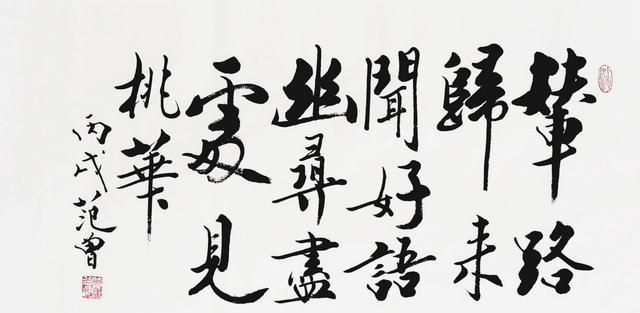 輦路
歸来
聞好語
幽尋盡
處見
桃華
丙戌范曾